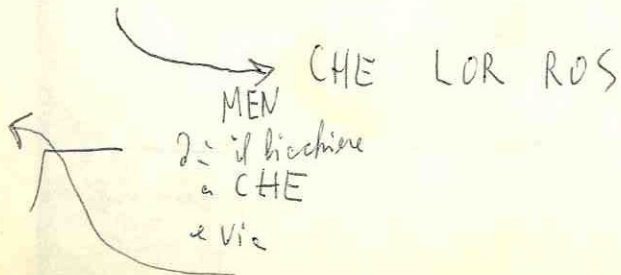 CHE LOR ROS
MEN
dà il bicchiere
a CHE
e via